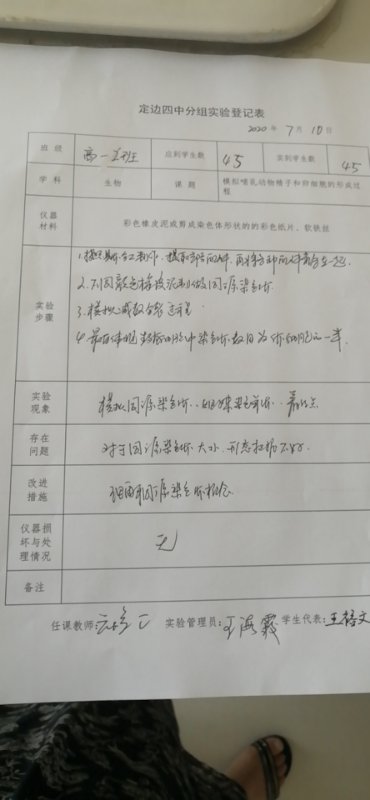 定边四中分组实验登记表
2020 年 7 月 10 日
班 级 高一 班 应到学生数 45 实到学生数 45
学 科 生物 课 题 模拟哺乳动物精子和卵细胞的形成过程
仪器材料 彩色橡皮泥或剪成染色体形状的的彩色纸片、软铁丝
实验步骤
2.不同颜色橡皮泥制做同源染色体
3.模拟减数分裂过程
4.最后体现 细胞中染色体数目为体细胞的一半.
实验现象 模拟同源染色体、姐妹染色单体、着丝点
存在问题 对于同源染色体大小、形态把握不好.
改进措施 理解同源染色体概念
仪器损坏与处理情况 无
备注
任课教师: 实验管理员:王海霞 学生代表:王 文